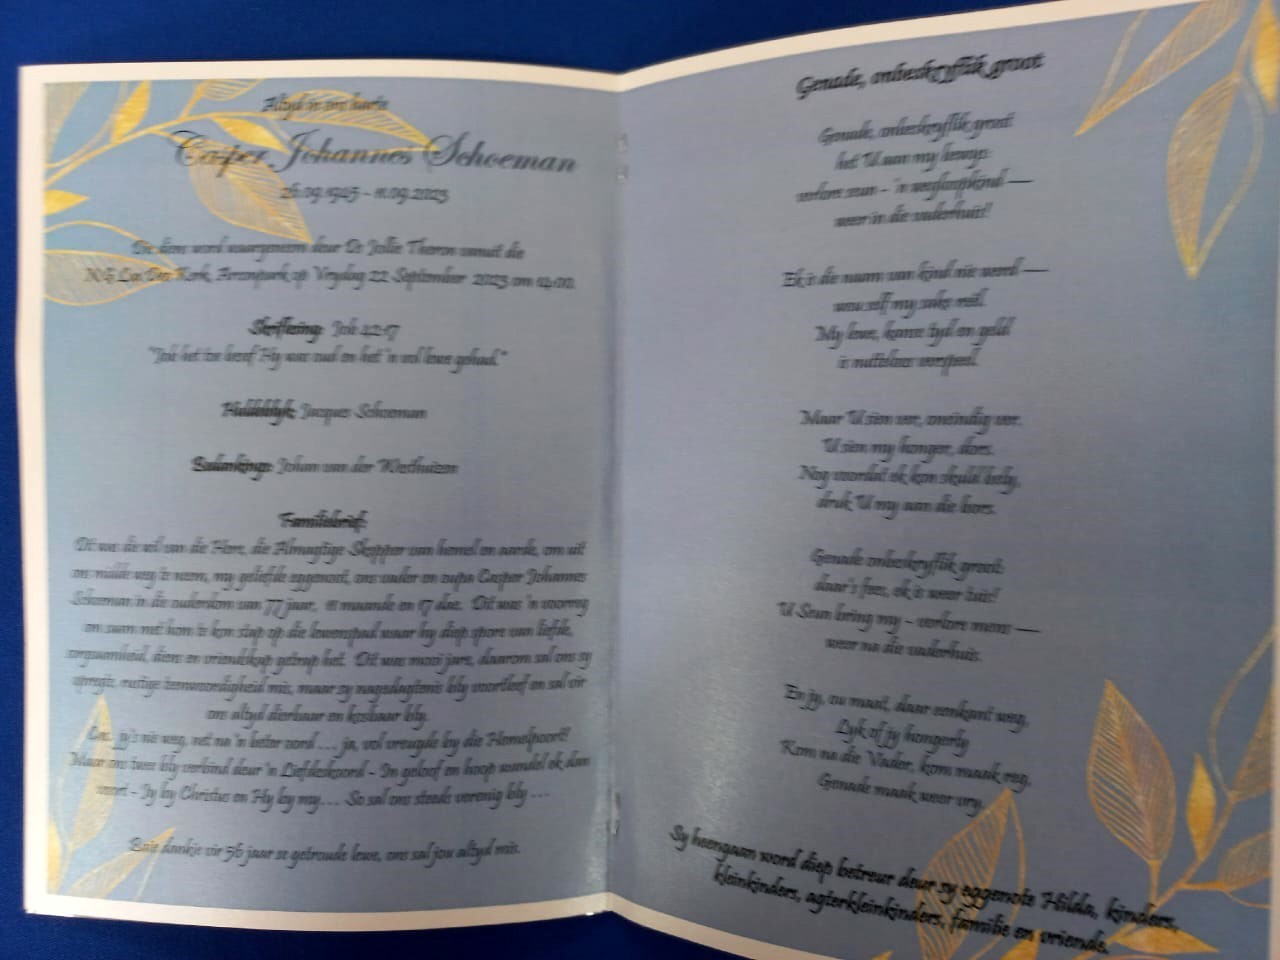 Altyd in ons harte
Casper Johannes Schoeman
26.09.1945 - 11.09.2023
Die diens word waargeneem deur Ds Jollie Theron vanuit die
N G Lux Dei Kerk, Arconpark op Vrydag 22 September 2023 om 14:00.
Skriflesing: Job 42:17
"Job het toe besef Hy was oud en het 'n vol lewe gehad."
Huldeblyk: Jacques Schoeman
Bedankings: Johan van der Westhuizen
Familiebrief:
Dit was die wil van die Here, die Almagtige Skepper van hemel en aarde, om uit
ons midde weg te neem, my geliefde eggenoot, ons vader en oupa Casper Johannes
Schoeman in die ouderdom van 77 jaar, 11 maande en 17 dae. Dit was 'n voorreg
om saam met hom te kon stap op die lewenspad waar hy diep spore van liefde,
sorgsaamheid, diens en vriendskap getrap het. Dit was mooi jare, daarom sal ons sy
opregte, rustige teenwoordigheid mis, maar sy nagedagtenis bly voortleef en sal vir
ons altyd dierbaar en kosbaar bly.
jy's nie weg, net na 'n beter oord .... ja, vol vreugde by die Hemelpoort!!
Maar ons twee bly verbind deur 'n Liefdeskoord - In geloof en hoop wandel ek dan
voort - Jy by Christus en Hy by my.... So sal ons steeds verenig bly ....
Baie dankie vir 56 jaar se getroude lewe, ons sal jou altyd mis.
Genade, onbeskryflik groot
Genade, onbeskryflik groot
het U aan my bewys:
verlore seun - 'n wegloopkind —
weer in die vaderhuis!
Ek is die naam van kind nie werd —
wou self my sake reël.
My lewe, kanse tyd en geld
is nutteloos verspeel.
Maar U sien ver, oneindig ver.
U sien my honger, dors.
Nog voordat ek kom skuld bely,
druk U my aan die bors.
Genade onbeskryflik groot:
daar's fees, ek is weer tuis!
U Seun bring my - verlore mens —
weer na die vaderhuis.
En jy, ou maat, daar eenkant weg,
Lyk of jy hongerly
Kom na die Vader, kom maak reg.
Genade maak weer vry.
Sy heengaan word diep betreur deur sy eggenote Hilda, kinders,
kleinkinders, agterkleinkinders, familie en vriende.